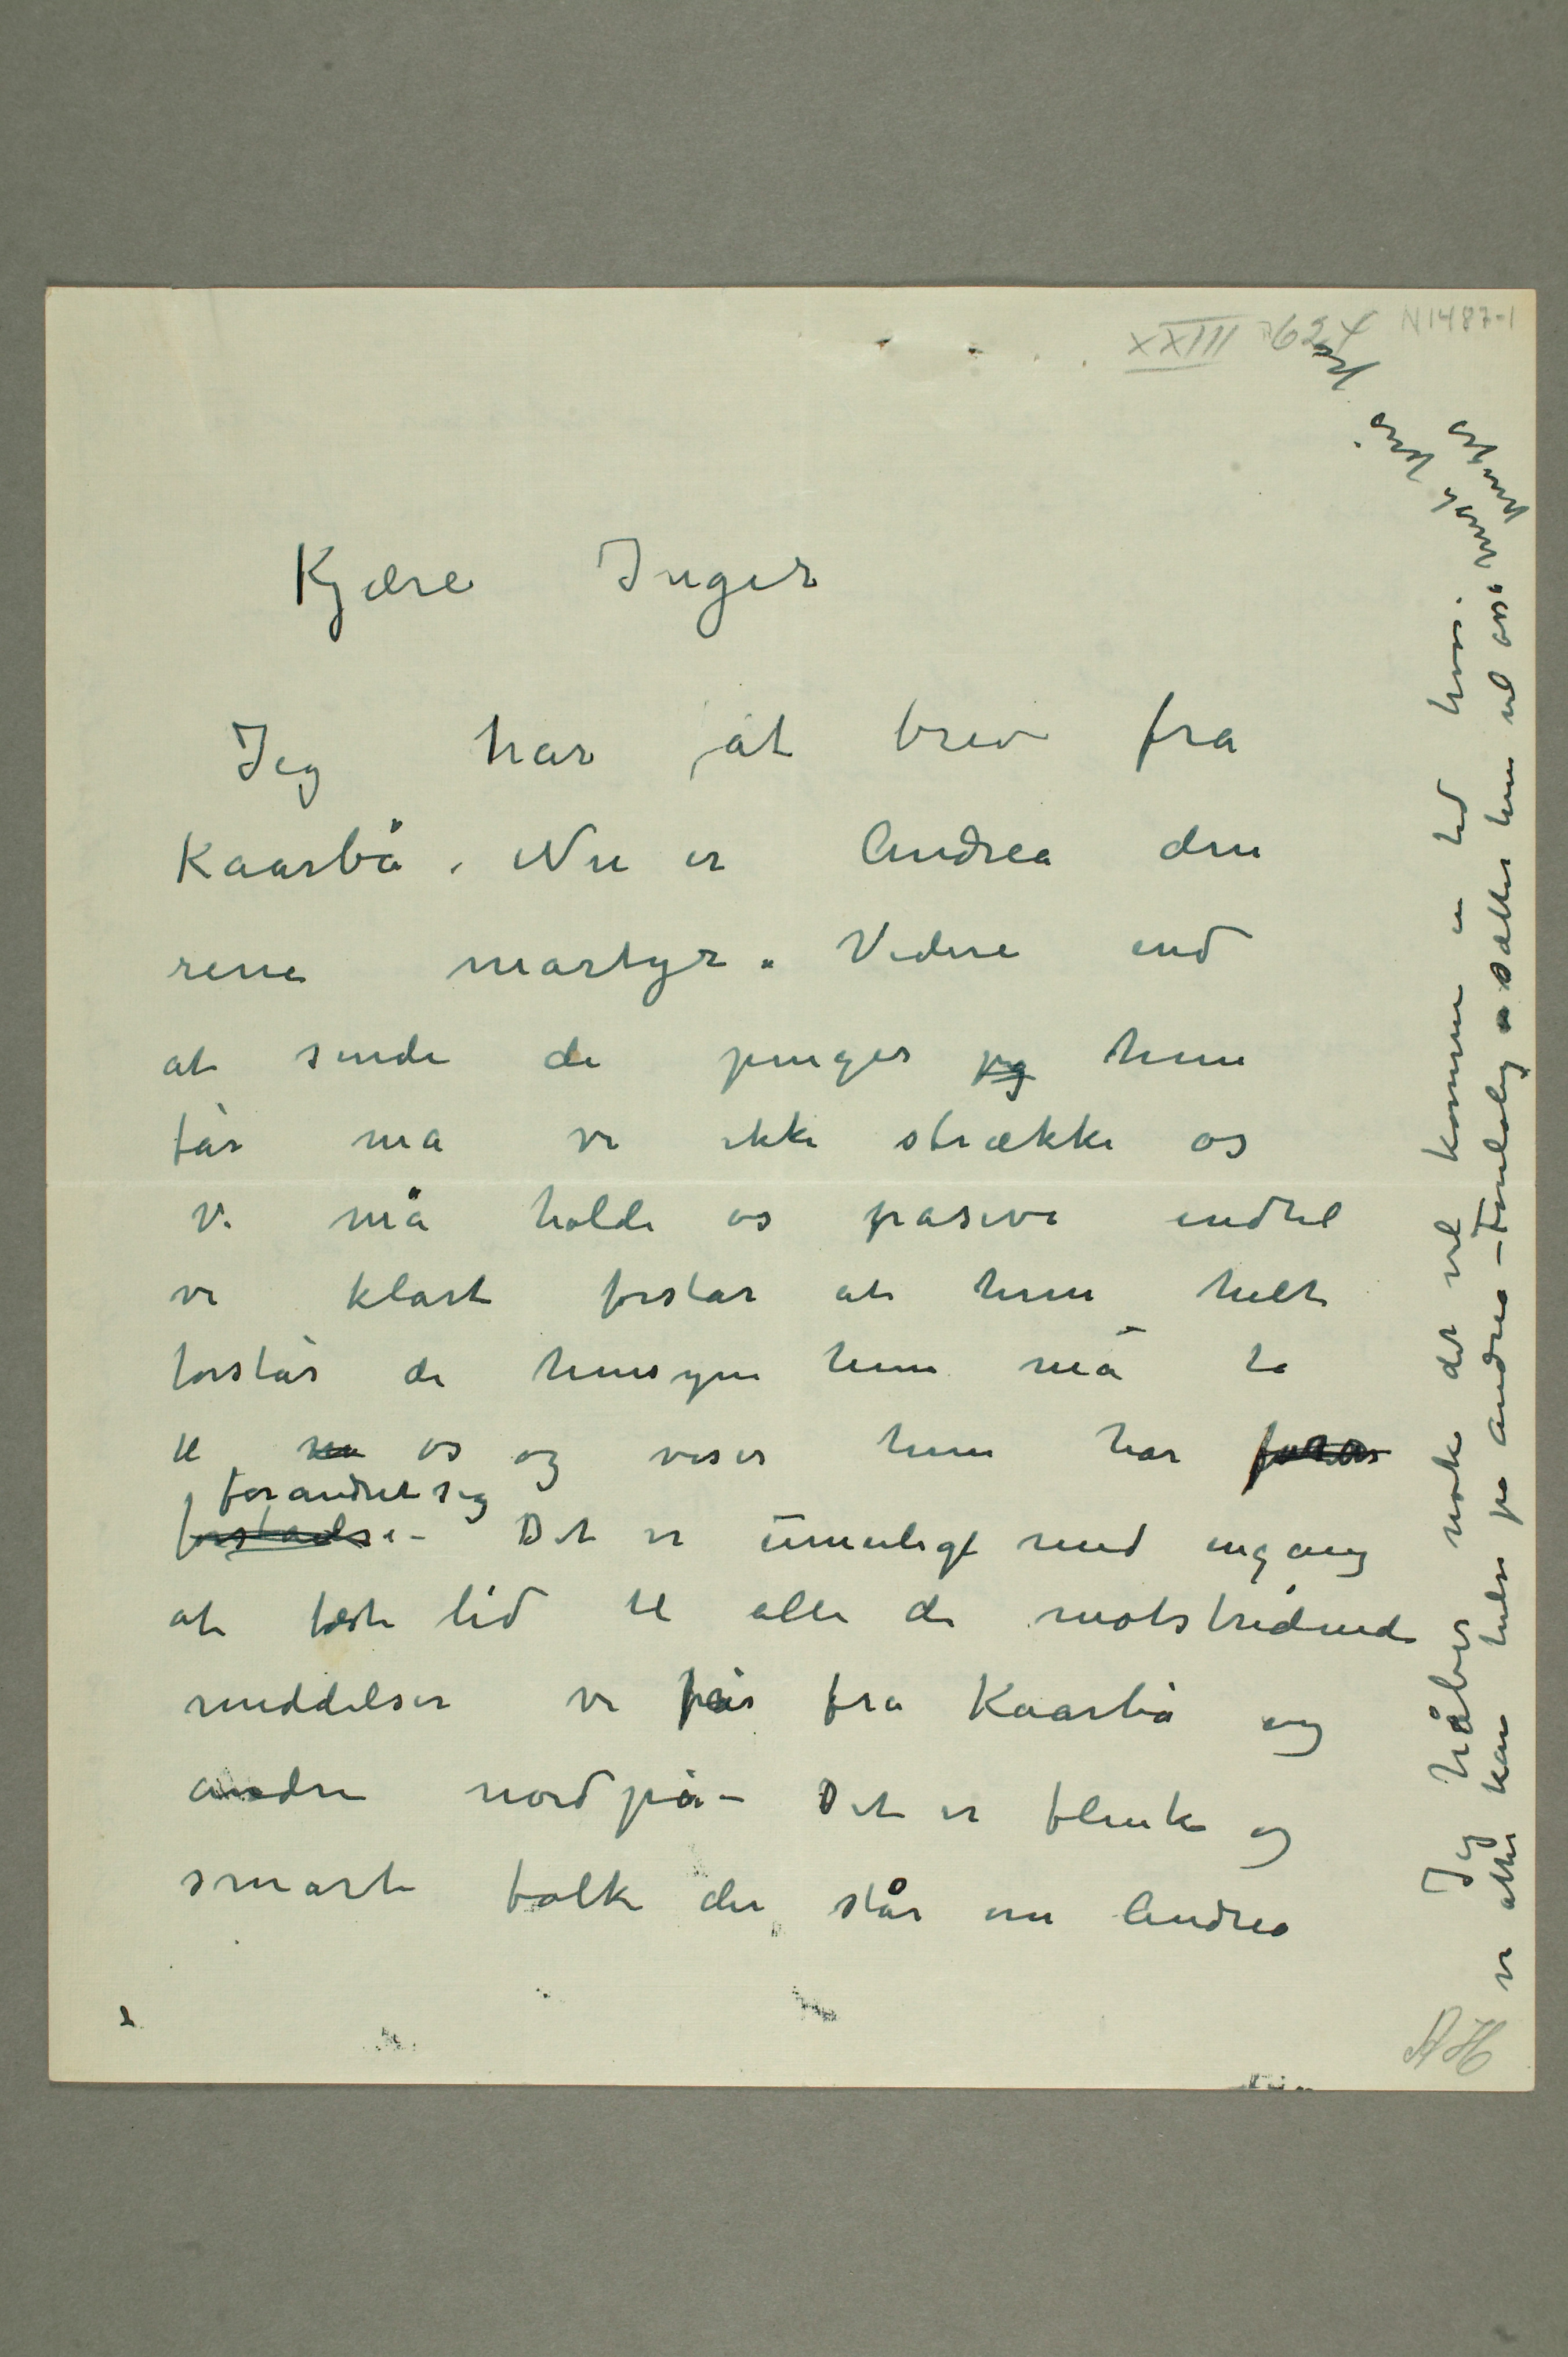 XXIII 624 N1487-1
Kjære Inger
Jeg har åt brev fra
Kaarbå. Nu er Andrea den
rene martyr. Videre end
at sende de penger jeg hun
får må vi ikke strække os
Vi må holde os pasive indtil
vi klart forstår at hun helt
forstår de hensyn hun må ta
til os og viser hun har
forandret sig
forståelse- Det er umuligt med engang
at fæste lid til alle de motstridende
meddelser vi får fra Kaarbå og
andre nordpå- Det er flinke og
smarte folk der står om Andrea
Jeg håber nok det vil komme en tid hvor
vi atter kan hilse på Andrea - Foreløbig sætter hun vel også
AH